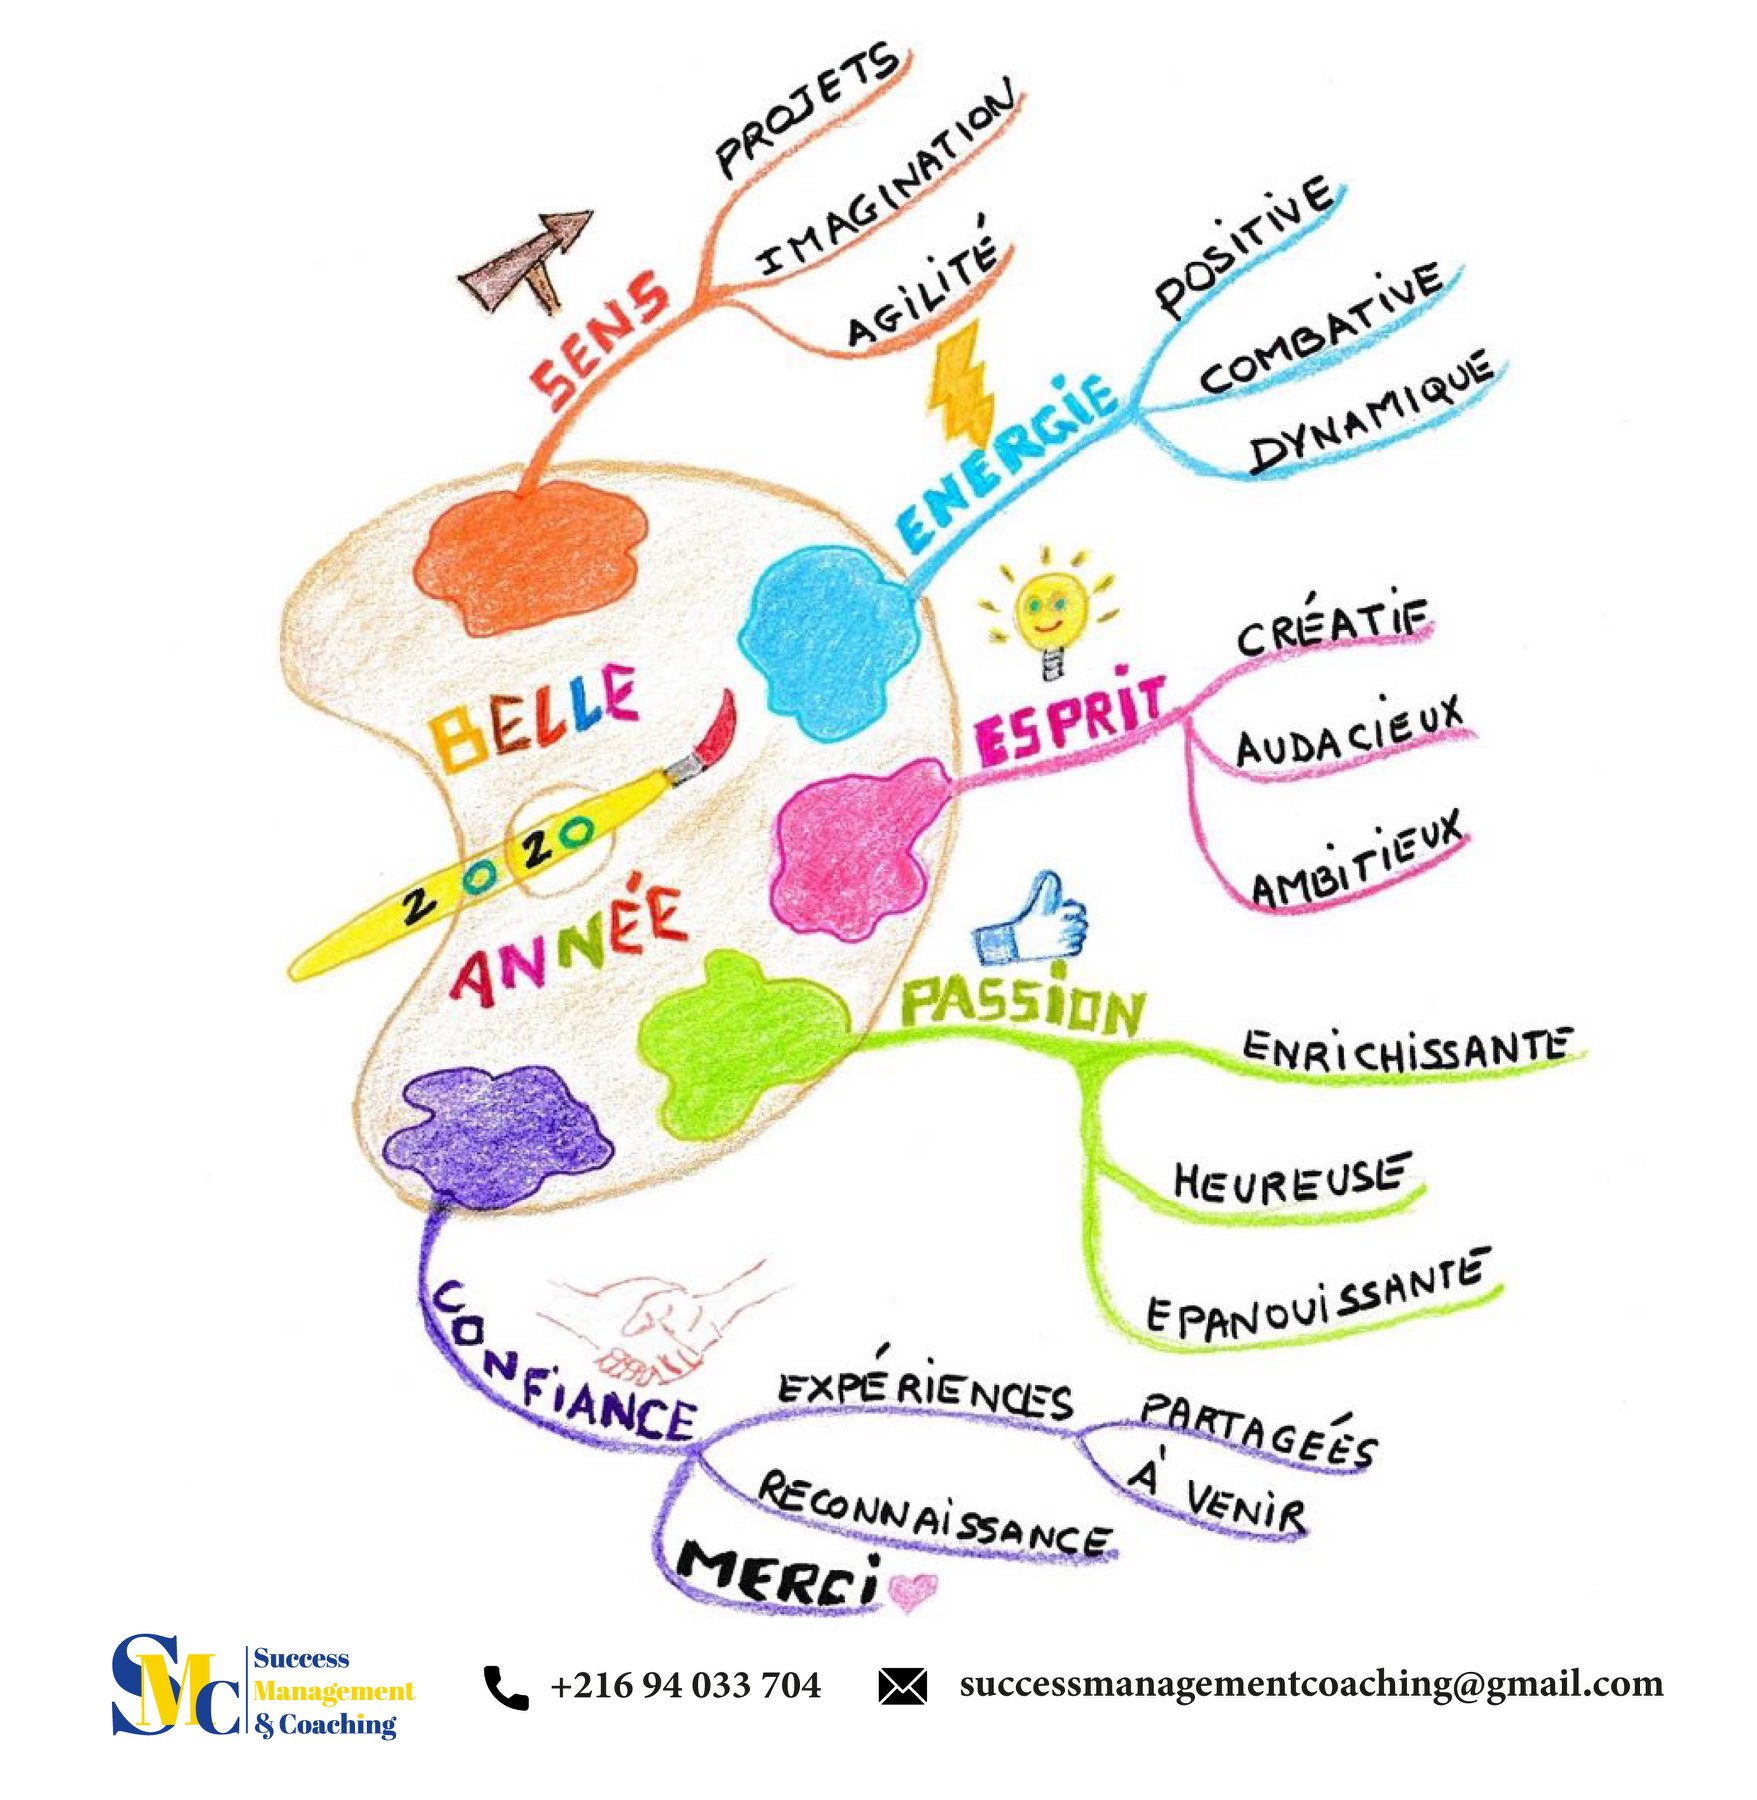 PROJETS
IMAGINATION
AGILITÉ
SENS
POSITIVE
COMBATIVE
DYNAMIQUE
ENERGIE
CRÉATIF
AUDACIEUX
AMBITIEUX
ESPRIT
BELLE
2020
ANNÉE
PASSION
ENRICHISSANTE
HEUREUSE
EPANOUISSANTE
CONFIANCE
EXPÉRIENCES
PARTAGEÉS
À VENIR
RECONNAISSANCE
MERCI
SMC
Success
Management
& Coaching
+216 94 033 704
successmanagementcoaching@gmail.com